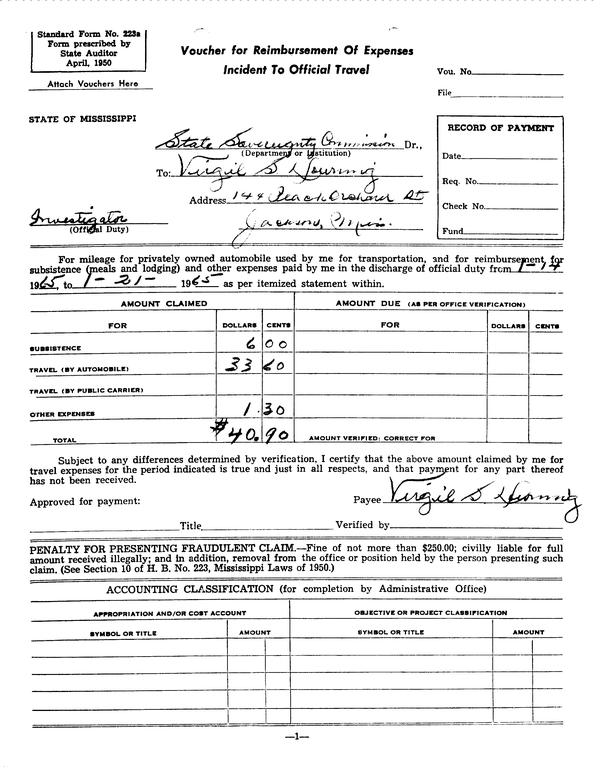 Standard Form No. 223a
Form prescribed by
State Auditor
April, 1950
Attach Vouchers Here
Voucher for Reimbursement Of Expenses
Incident To Official Travel
Vou. No.
File
STATE OF MISSISSIPPI
RECORD OF PAYMENT
Date
Req. No.
Check No.
Fund
State Sovereignty Commission Dr.,
(Department or Institution)
To: Virgil S
Address 144 Orchard St
Jackson, Miss.
Investigator
(Official Duty)
For mileage for privately owned automobile used by me for transportation, and for reimbursement for
subsistence (meals and lodging) and other expenses paid by me in the discharge of official duty from 1-14
1965, to 1-21- 1965 as per itemized statement within.
AMOUNT CLAIMED AMOUNT DUE (AS PER OFFICE VERIFICATION)
FOR DOLLARS CENTS FOR DOLLARS CENTS
SUBSISTENCE 6 00
TRAVEL (BY AUTOMOBILE) 33 60
TRAVEL (BY PUBLIC CARRIER)
OTHER EXPENSES 1.30
TOTAL $40.90 AMOUNT VERIFIED: CORRECT FOR
Subject to any differences determined by verification, I certify that the above amount claimed by me for
travel expenses for the period indicated is true and just in all respects, and that payment for any part thereof
has not been received.
Approved for payment: Payee Virgil S
Title Verified by
PENALTY FOR PRESENTING FRAUDULENT CLAIM.—Fine of not more than $250.00; civilly liable for full
amount received illegally; and in addition, removal from the office or position held by the person presenting such
claim. (See Section 10 of H. B. No. 223, Mississippi Laws of 1950.)
ACCOUNTING CLASSIFICATION (for completion by Administrative Office)
APPROPRIATION AND/OR COST ACCOUNT OBJECTIVE OR PROJECT CLASSIFICATION
SYMBOL OR TITLE AMOUNT SYMBOL OR TITLE AMOUNT
—1—